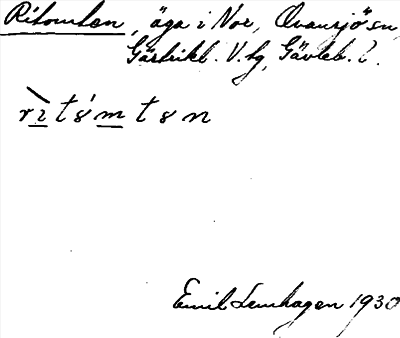 Ritomten, äga i Nor, Ovansjö sn,
Gästrikl. V. hg, Gävleb. l.
Emil Lenhagen 1930